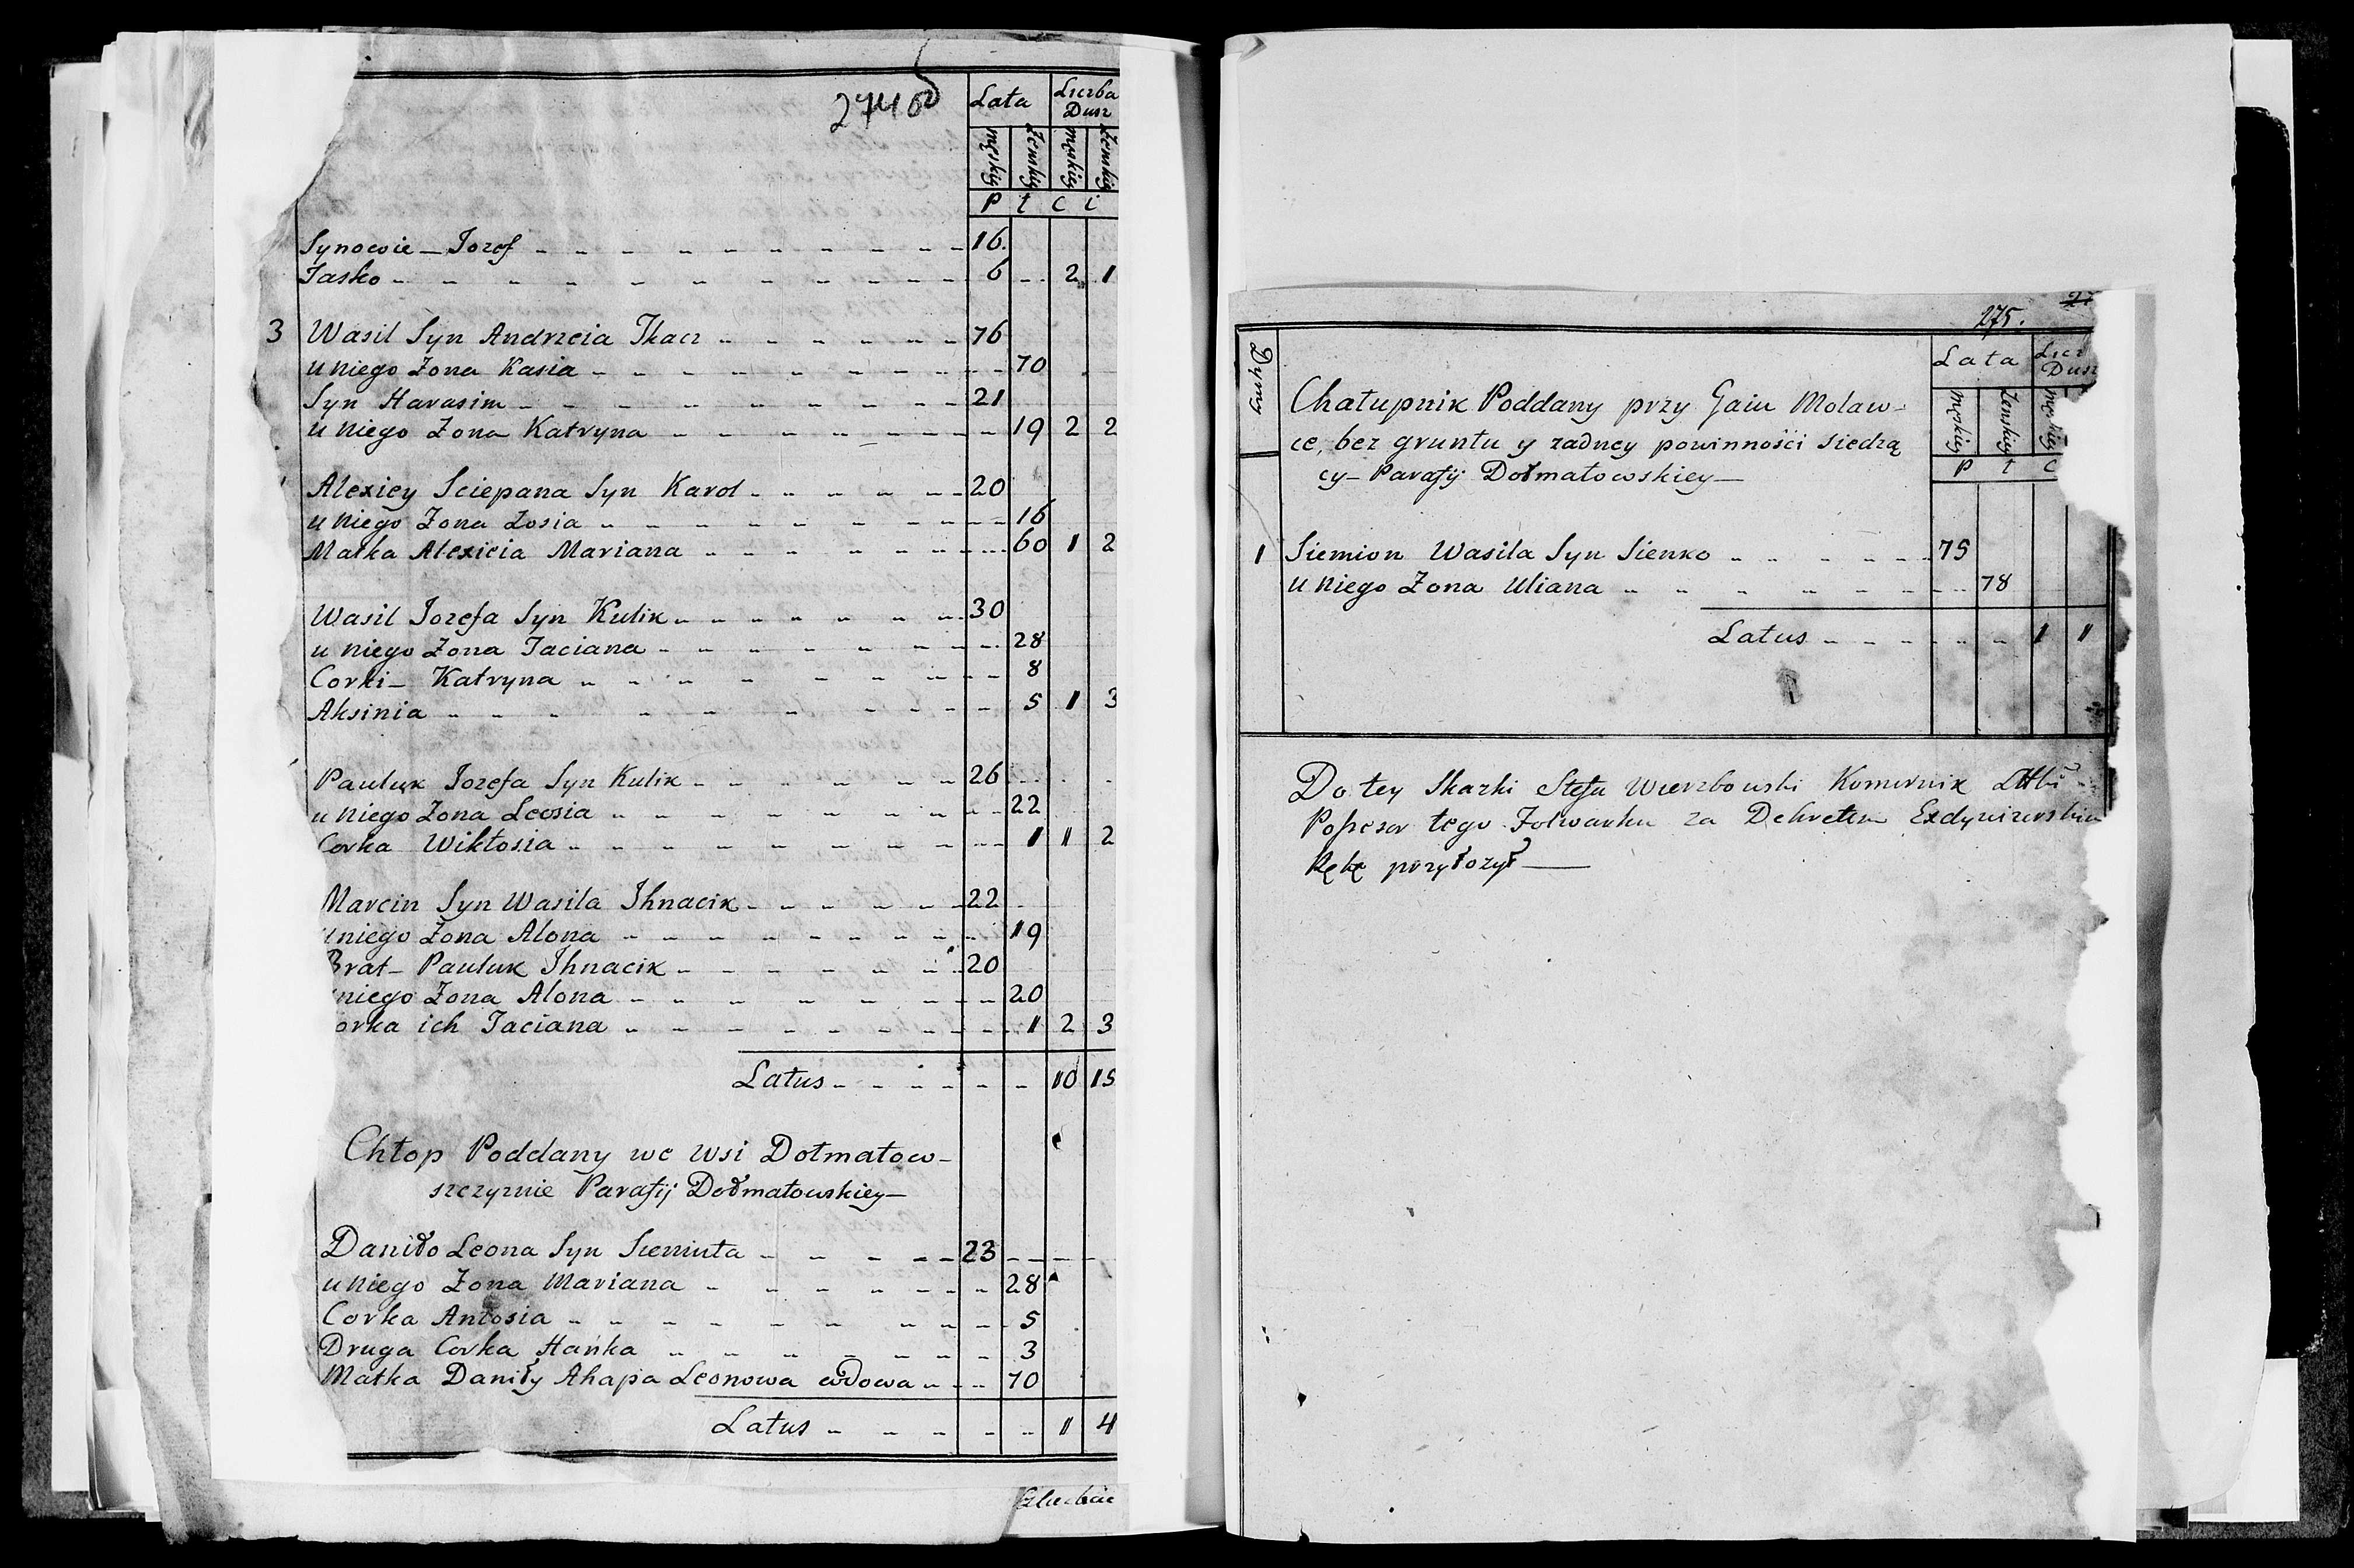 274 об
Lata Liczba Dusz
męskiey Żenskiey męskiey Żenskiey
P ł c i
Synowie - Jozef 16.
Jasko 6 2 1
3 Wasil Syn Andrzeia Tkacz 76
u niego Żona Kasia 70
Syn Harasim 21
u niego Żona Katryna 19 2 2
Alexiey Sciepana Syn Karol 20
u niego Żona Zosia 16
Matka Alexieia Mariana 60 1 2
Wasil Jozefa Syn Kulik 30
u niego Żona Taciana 28
Corki - Katryna 8
Aksinia 5 1 3
Pauluk Jozefa Syn Kulik 26
u niego Żona Leosia 22
Corka Wiktosia 1 1 2
Marcin Syn Wasila Ihnacik 22
u niego Żona Alona 19
Brat - Pauluk Ihnacik 20
niego Żona Alona 20
orka ich Taciana 1 2 3
Latus 10 15
Chłop Poddany we Wsi Dołmatow-
szczyznie Parafij Dołmatowskiey
Daniło Leona Syn 23
u niego Żona Mariana 28
Corka Antosia 5
Druga Corka Hańka 3
Matka Daniły Ahapa Leonowa wdowa 70
Latus 1 4
275.
Dymy
Lata Licz Dusz
męskiey Żenskiey męskiey
P ł c
Chałupnik Poddany przy Gaiu Molaw-
ce, bez gruntu y żadney powinności siedzą
cy - Parafij Dołmatowskiey
1 Siemion Wasila Syn Sienko 75
u niego Żona Uliana 78
Latus 1 1
Do tey Skazki Stefn Wierzbowski Komornik
Possesor tego Folwarku za Dekretem
Rękę przyłożył